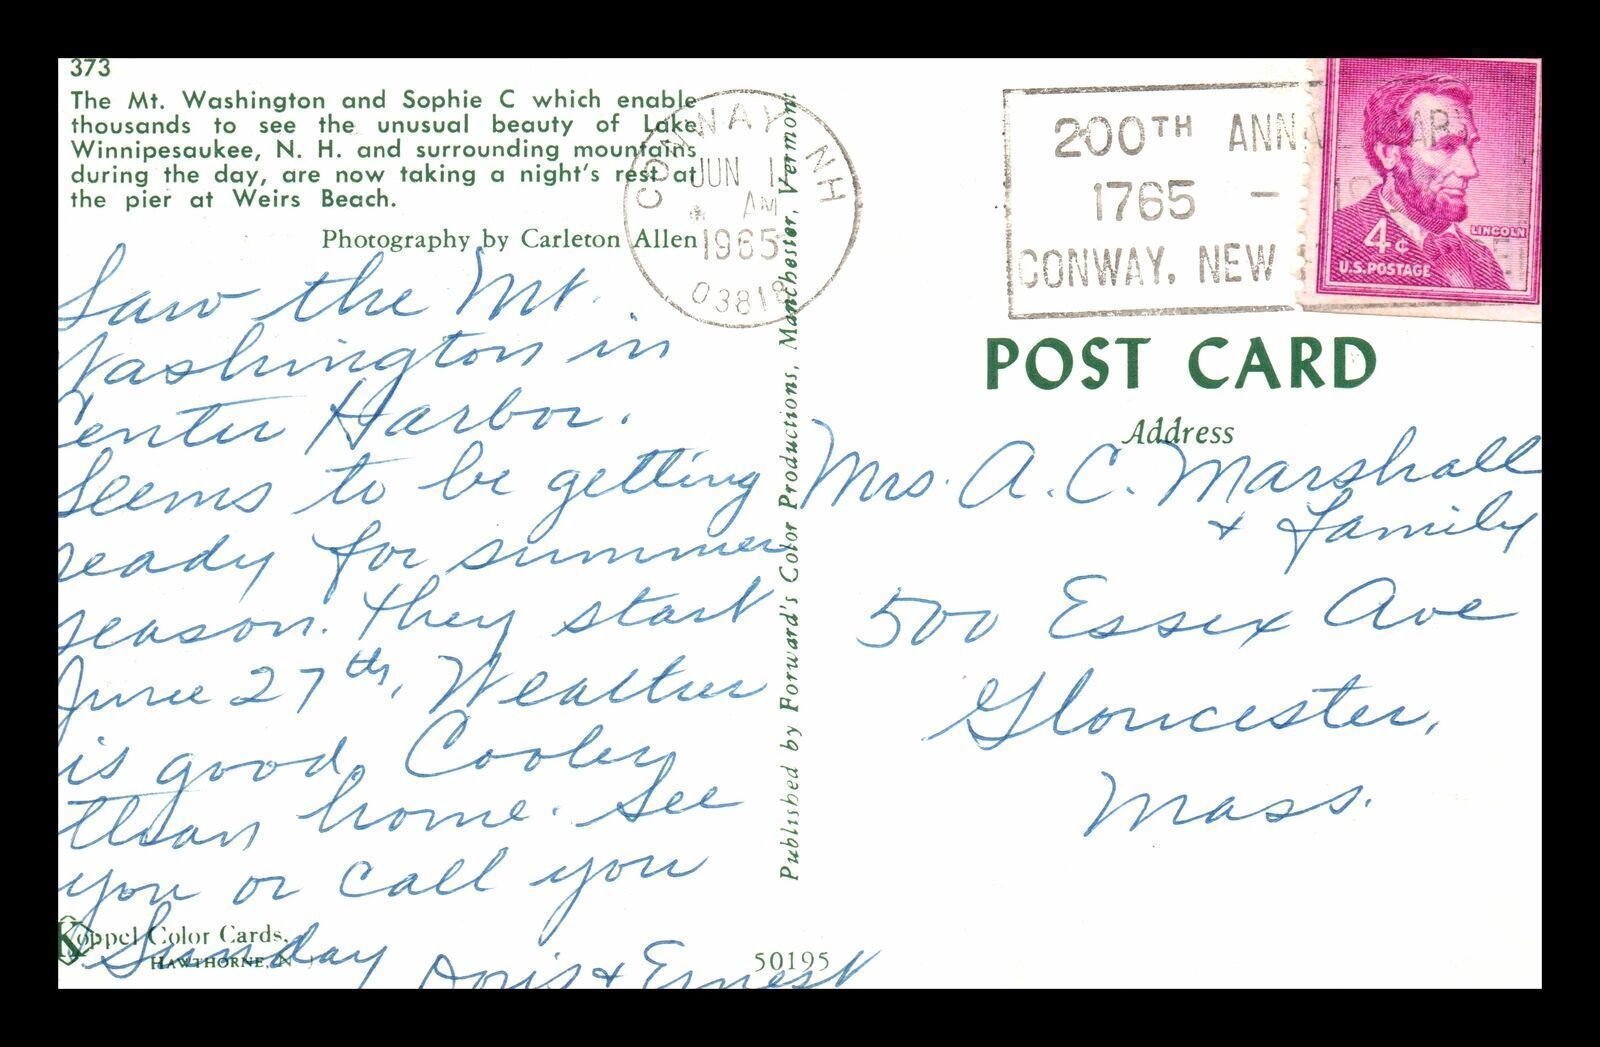 373
The Mt. Washington and Sophie C which enable
thousands to see the unusual beauty of Lake
Winnipesaukee, N. H. and surrounding mountains
during the day, are now taking a night's rest at
the pier at Weirs Beach.
Photography by Carleton Allen
Saw the Mt.
Washington in
Center Harbor.
Seems to be getting
ready for summer
season. They start
June 27th, Weather
is good, Cooler
than home. See
you or call you
Sunday Doris + Ernest
Koppel Color Cards,
HAWTHORNE, N J
50195
Published by Forward's Color Productions, Manchester, Vermont
CONWAY NH
JUN 1
AM
1965
03818
200TH ANN
1765 –
CONWAY, NEW
4¢
LINCOLN
U.S. POSTAGE
POST CARD
Address
Mrs. A. C. Marshall
+ family
500 Essex Ave
Gloucester,
Mass.